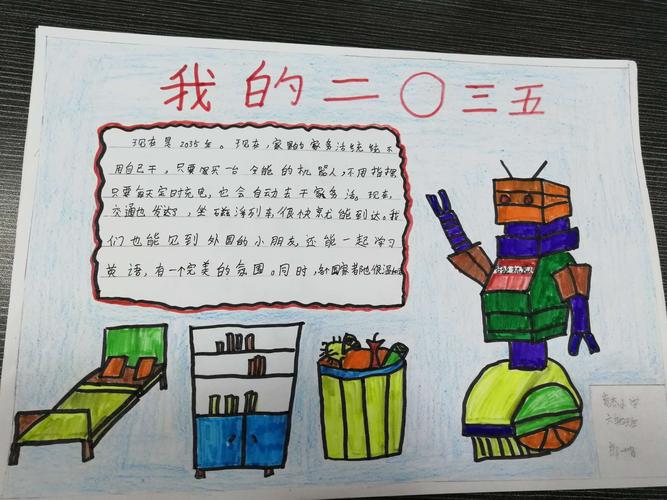 我的二〇三五
现在是2035年。现在,家里的家务活统统不
用自己干,只要买一台全能的机器人,不用指挥
只要每天定时充电,也会自动去干家务活。现在,
交通也发达了,坐磁浮列车很快就能到达。我
们也能见到外国的小朋友还能一起学习
英语,有一个完美的氛围。同时,各国家
小学
六